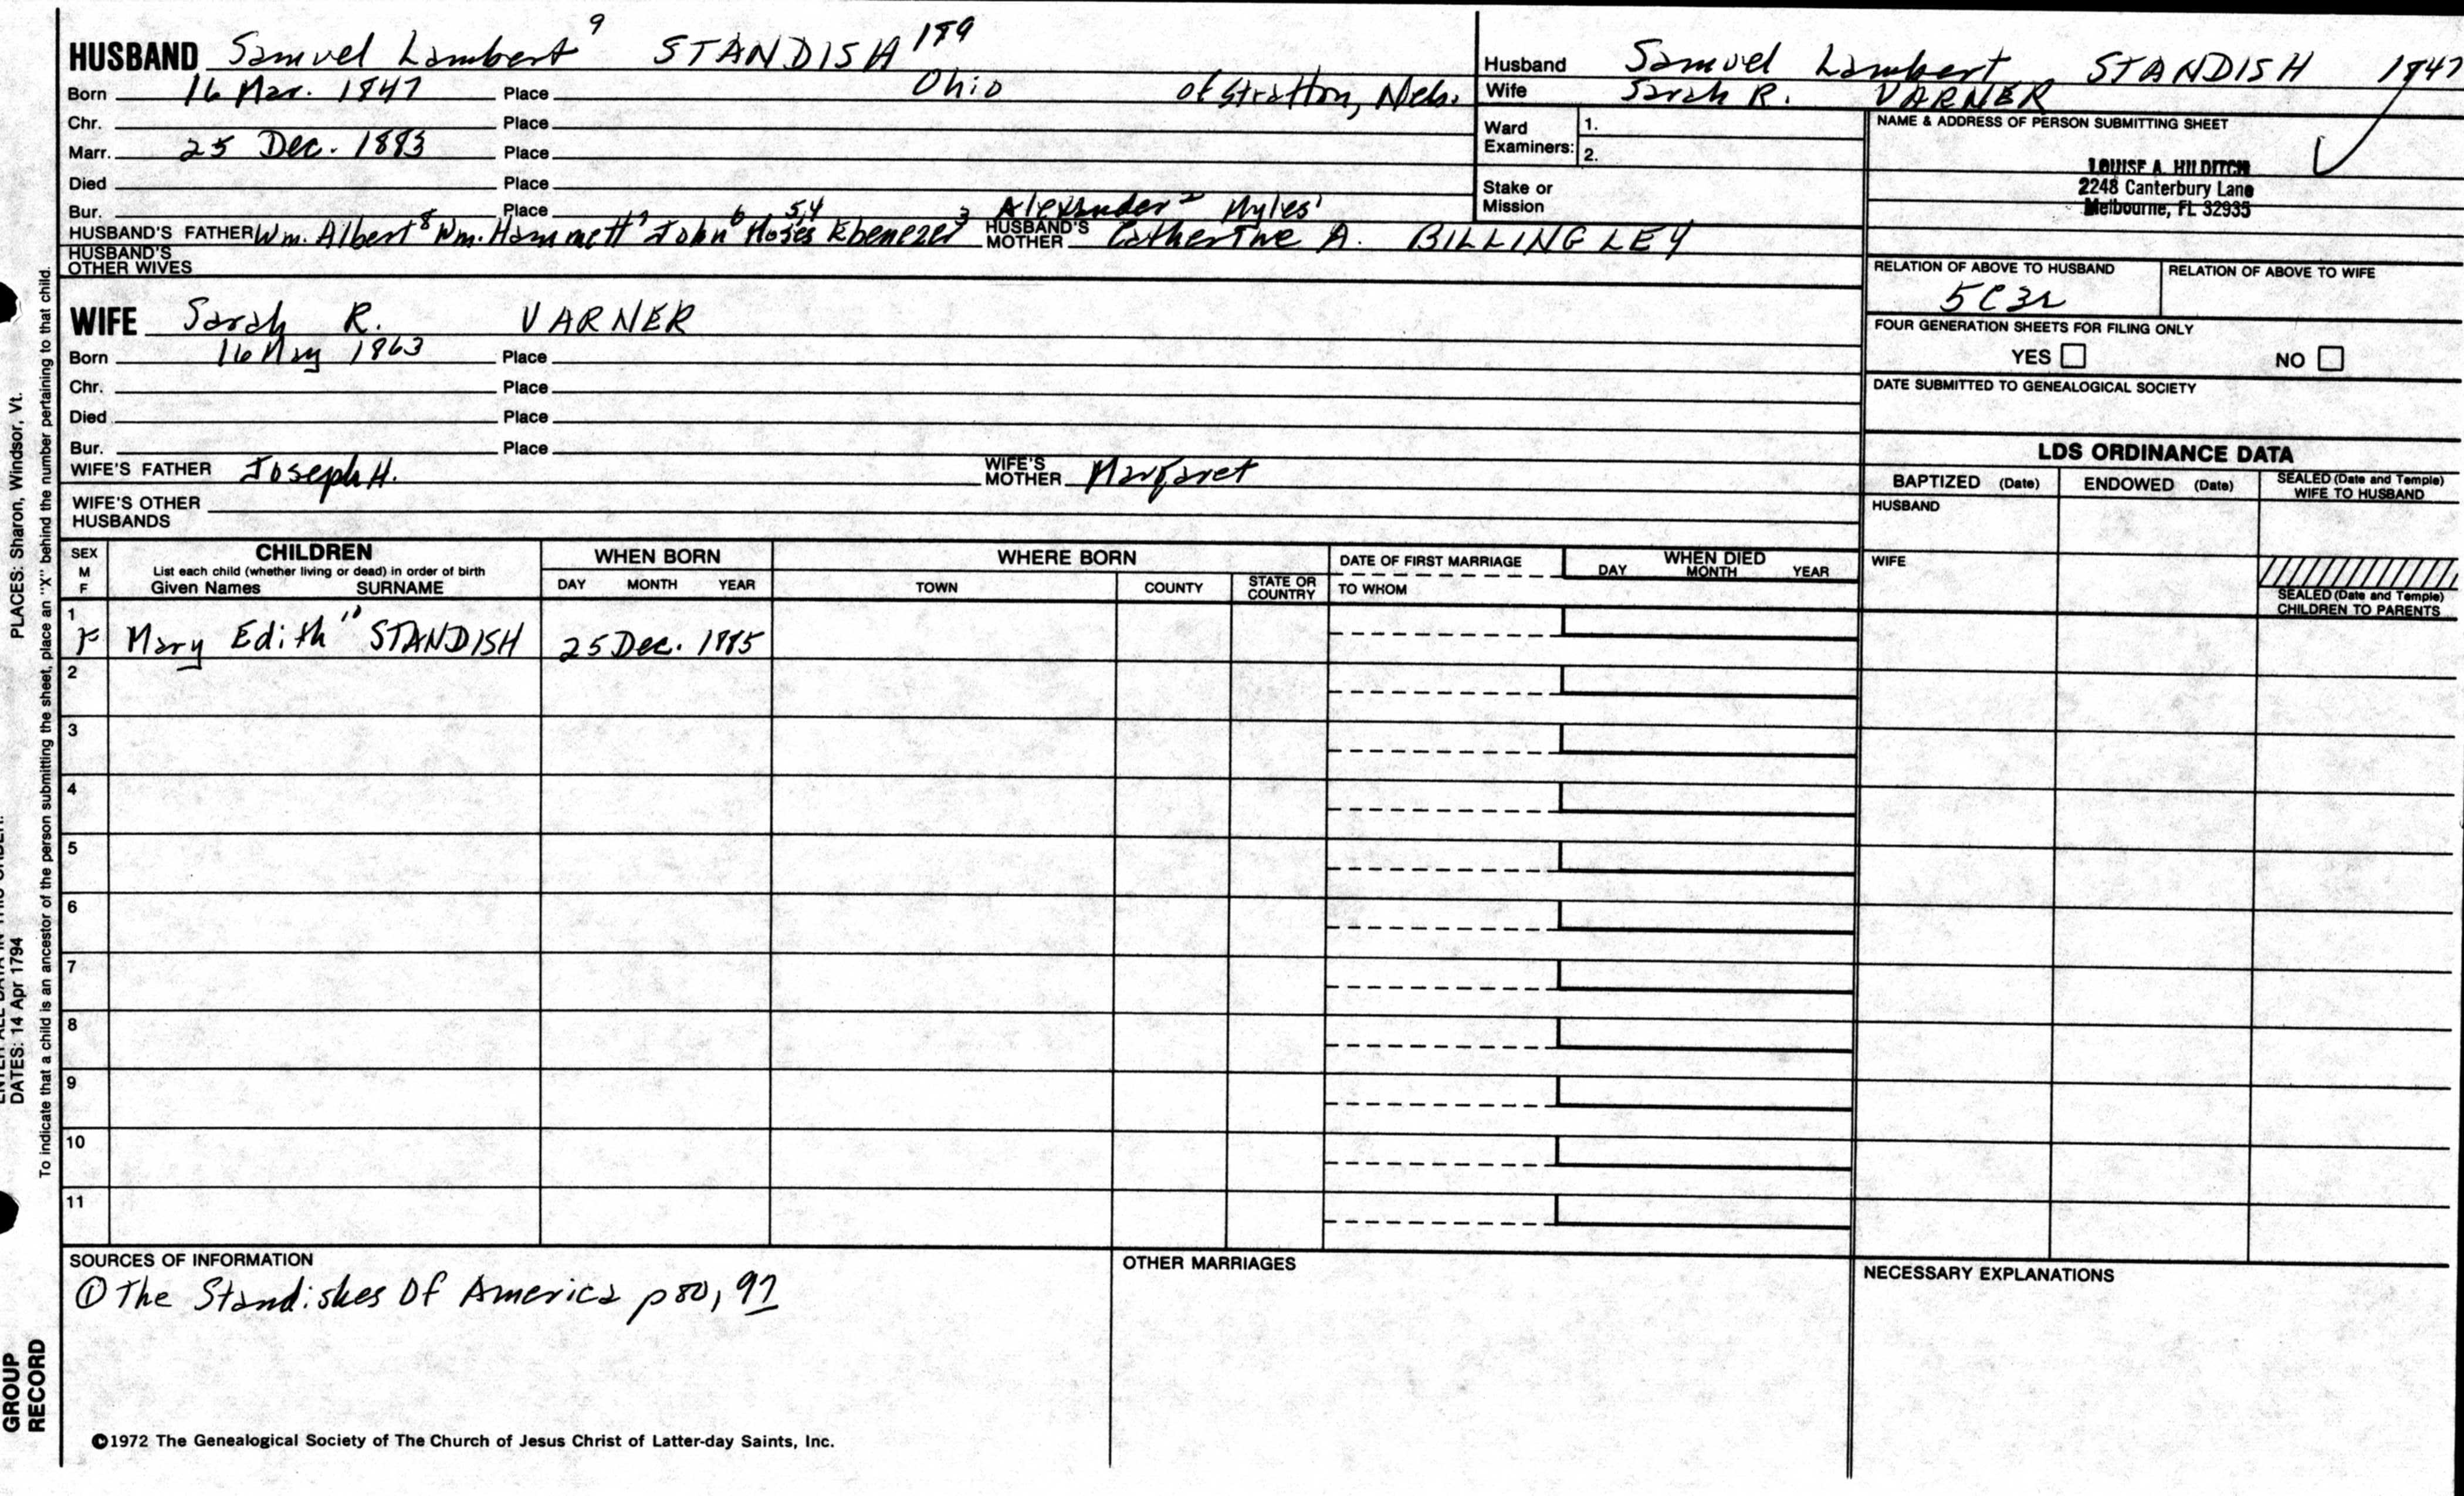 HUSBAND Samuel Lambert 9 STANDISH 189
Born 16 Mar. 1847 Place Ohio of Stratton, Neb.
Chr. Place
Marr. 25 Dec. 1883 Place
Died Place
Bur. Place Alexander 2 Myles 1
HUSBAND'S FATHER Wm. Albert 8 Wm. Hammett 7 John 6 Moses 5,4 Ebenezer 3 HUSBAND'S MOTHER Catherine A. BILLINGLEY
HUSBAND'S OTHER WIVES
Husband Samuel Lambert STANDISH 1847
Wife Sarah R. VARNER
Ward Examiners: 1.
2.
Stake or Mission
NAME & ADDRESS OF PERSON SUBMITTING SHEET
LOUISE A. HILDITCH
2248 Canterbury Lane
Melbourne, FL 32935
RELATION OF ABOVE TO HUSBAND RELATION OF ABOVE TO WIFE
5C3R
FOUR GENERATION SHEETS FOR FILING ONLY
YES NO
DATE SUBMITTED TO GENEALOGICAL SOCIETY
WIFE Sarah R. VARNER
Born 16 May 1863 Place
Chr. Place
Died Place
Bur. Place
WIFE'S FATHER Joseph H. WIFE'S MOTHER Margaret
WIFE'S OTHER HUSBANDS
LDS ORDINANCE DATA
BAPTIZED (Date) ENDOWED (Date) SEALED (Date and Temple) WIFE TO HUSBAND
HUSBAND
WIFE
SEALED (Date and Temple) CHILDREN TO PARENTS
SEX M F
CHILDREN
List each child (whether living or dead) in order of birth
Given Names SURNAME
WHEN BORN
DAY MONTH YEAR
WHERE BORN
TOWN COUNTY STATE OR COUNTRY
DATE OF FIRST MARRIAGE
TO WHOM
WHEN DIED
DAY MONTH YEAR
1
F Mary Edith " STANDISH 25 Dec. 1885
2
3
4
5
6
7
8
9
10
11
SOURCES OF INFORMATION
① The Standishes Of America p80, 97
OTHER MARRIAGES
NECESSARY EXPLANATIONS
©1972 The Genealogical Society of The Church of Jesus Christ of Latter-day Saints, Inc.
PLACES: Sharon, Windsor, Vt.
DATES: 14 Apr 1794
To indicate that a child is an ancestor of the person submitting the sheet, place an "X" behind the number pertaining to that child.
GROUP
RECORD